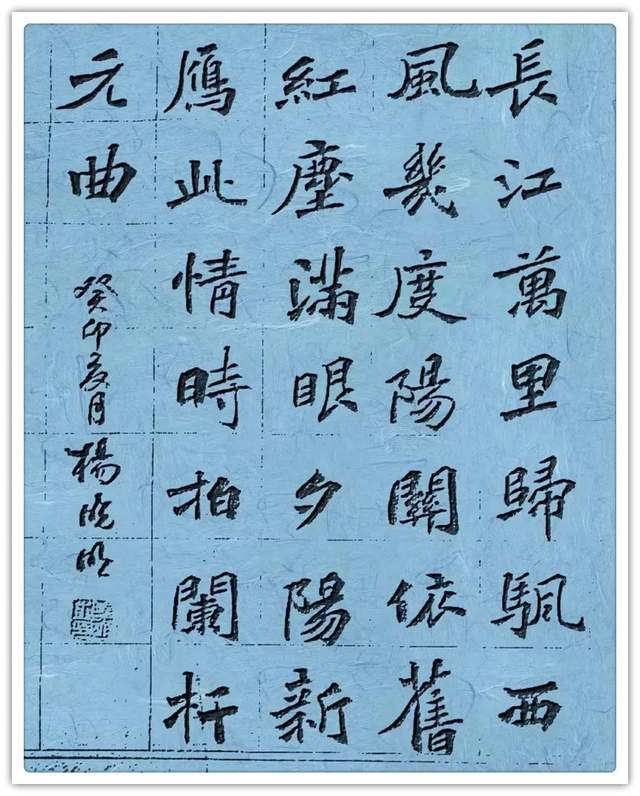 長江萬里歸颿西
風幾度陽關依舊
紅塵滿眼夕陽新
鴈此情時拍闌杆
元曲
癸卯夏月楊晓明